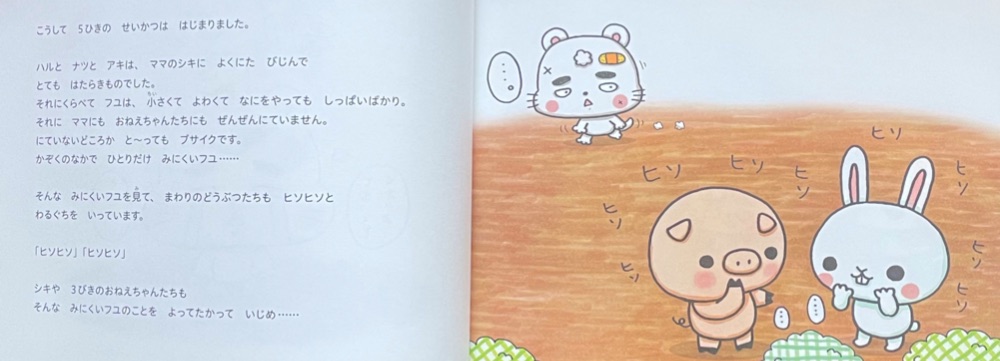 こうして　5ひきの　せいかつは　はじまりました。
ハルと　ナツと　アキは、　ママのシキに　よくにた　びじんで
とても　はたらきものでした。
それにくらべて　フユは、　小さくて　よわくて　なにをやっても　しっぱいばかり。
それに　ママにも　おねえちゃんたちにも　ぜんぜんにていません。
にていないどころか　と〜っても　ブサイクです。
かぞくのなかで　ひとりだけ　みにくいフユ……
そんな　みにくいフユを見て、　まわりのどうぶつたちも　ヒソヒソと
わるぐちを　いっています。
「ヒソヒソ」「ヒソヒソ」
シキや　3びきのおねえちゃんたちも
そんな　みにくいフユのことを　よってたかって　いじめ……
ヒソ
ヒソ
ヒソ
ヒソ
ヒソ
ヒソ
ヒソ
ヒソ
ヒソ